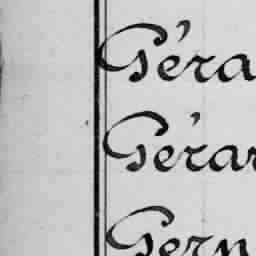 Géra
Gérar
Gern